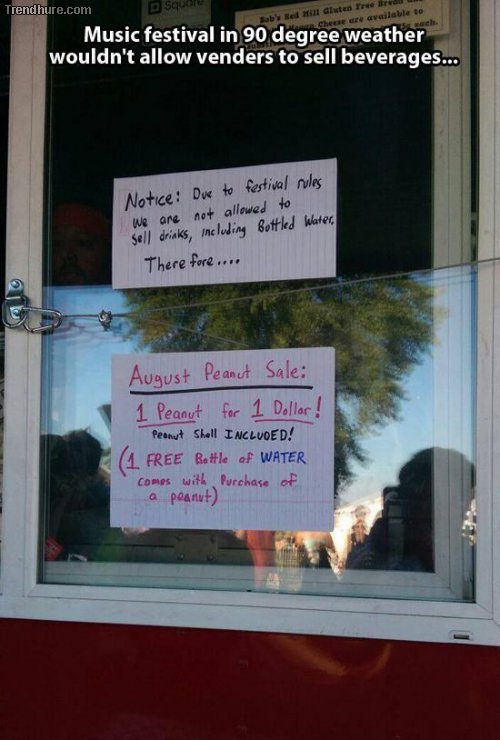 Trendhure.com
Square
Bob's Red Mill Gluten Free Bread
Vegan Cheese are available to
each.
Music festival in 90 degree weather
wouldn't allow venders to sell beverages...
Notice: Due to festival rules
we are not allowed to
sell drinks, including Bottled Water,
There fore....
August Peanut Sale:
1 Peanut for 1 Dollar!
Peanut Shell INCLUDED!
(1 FREE Bottle of WATER
comes with Purchase of
a peanut)